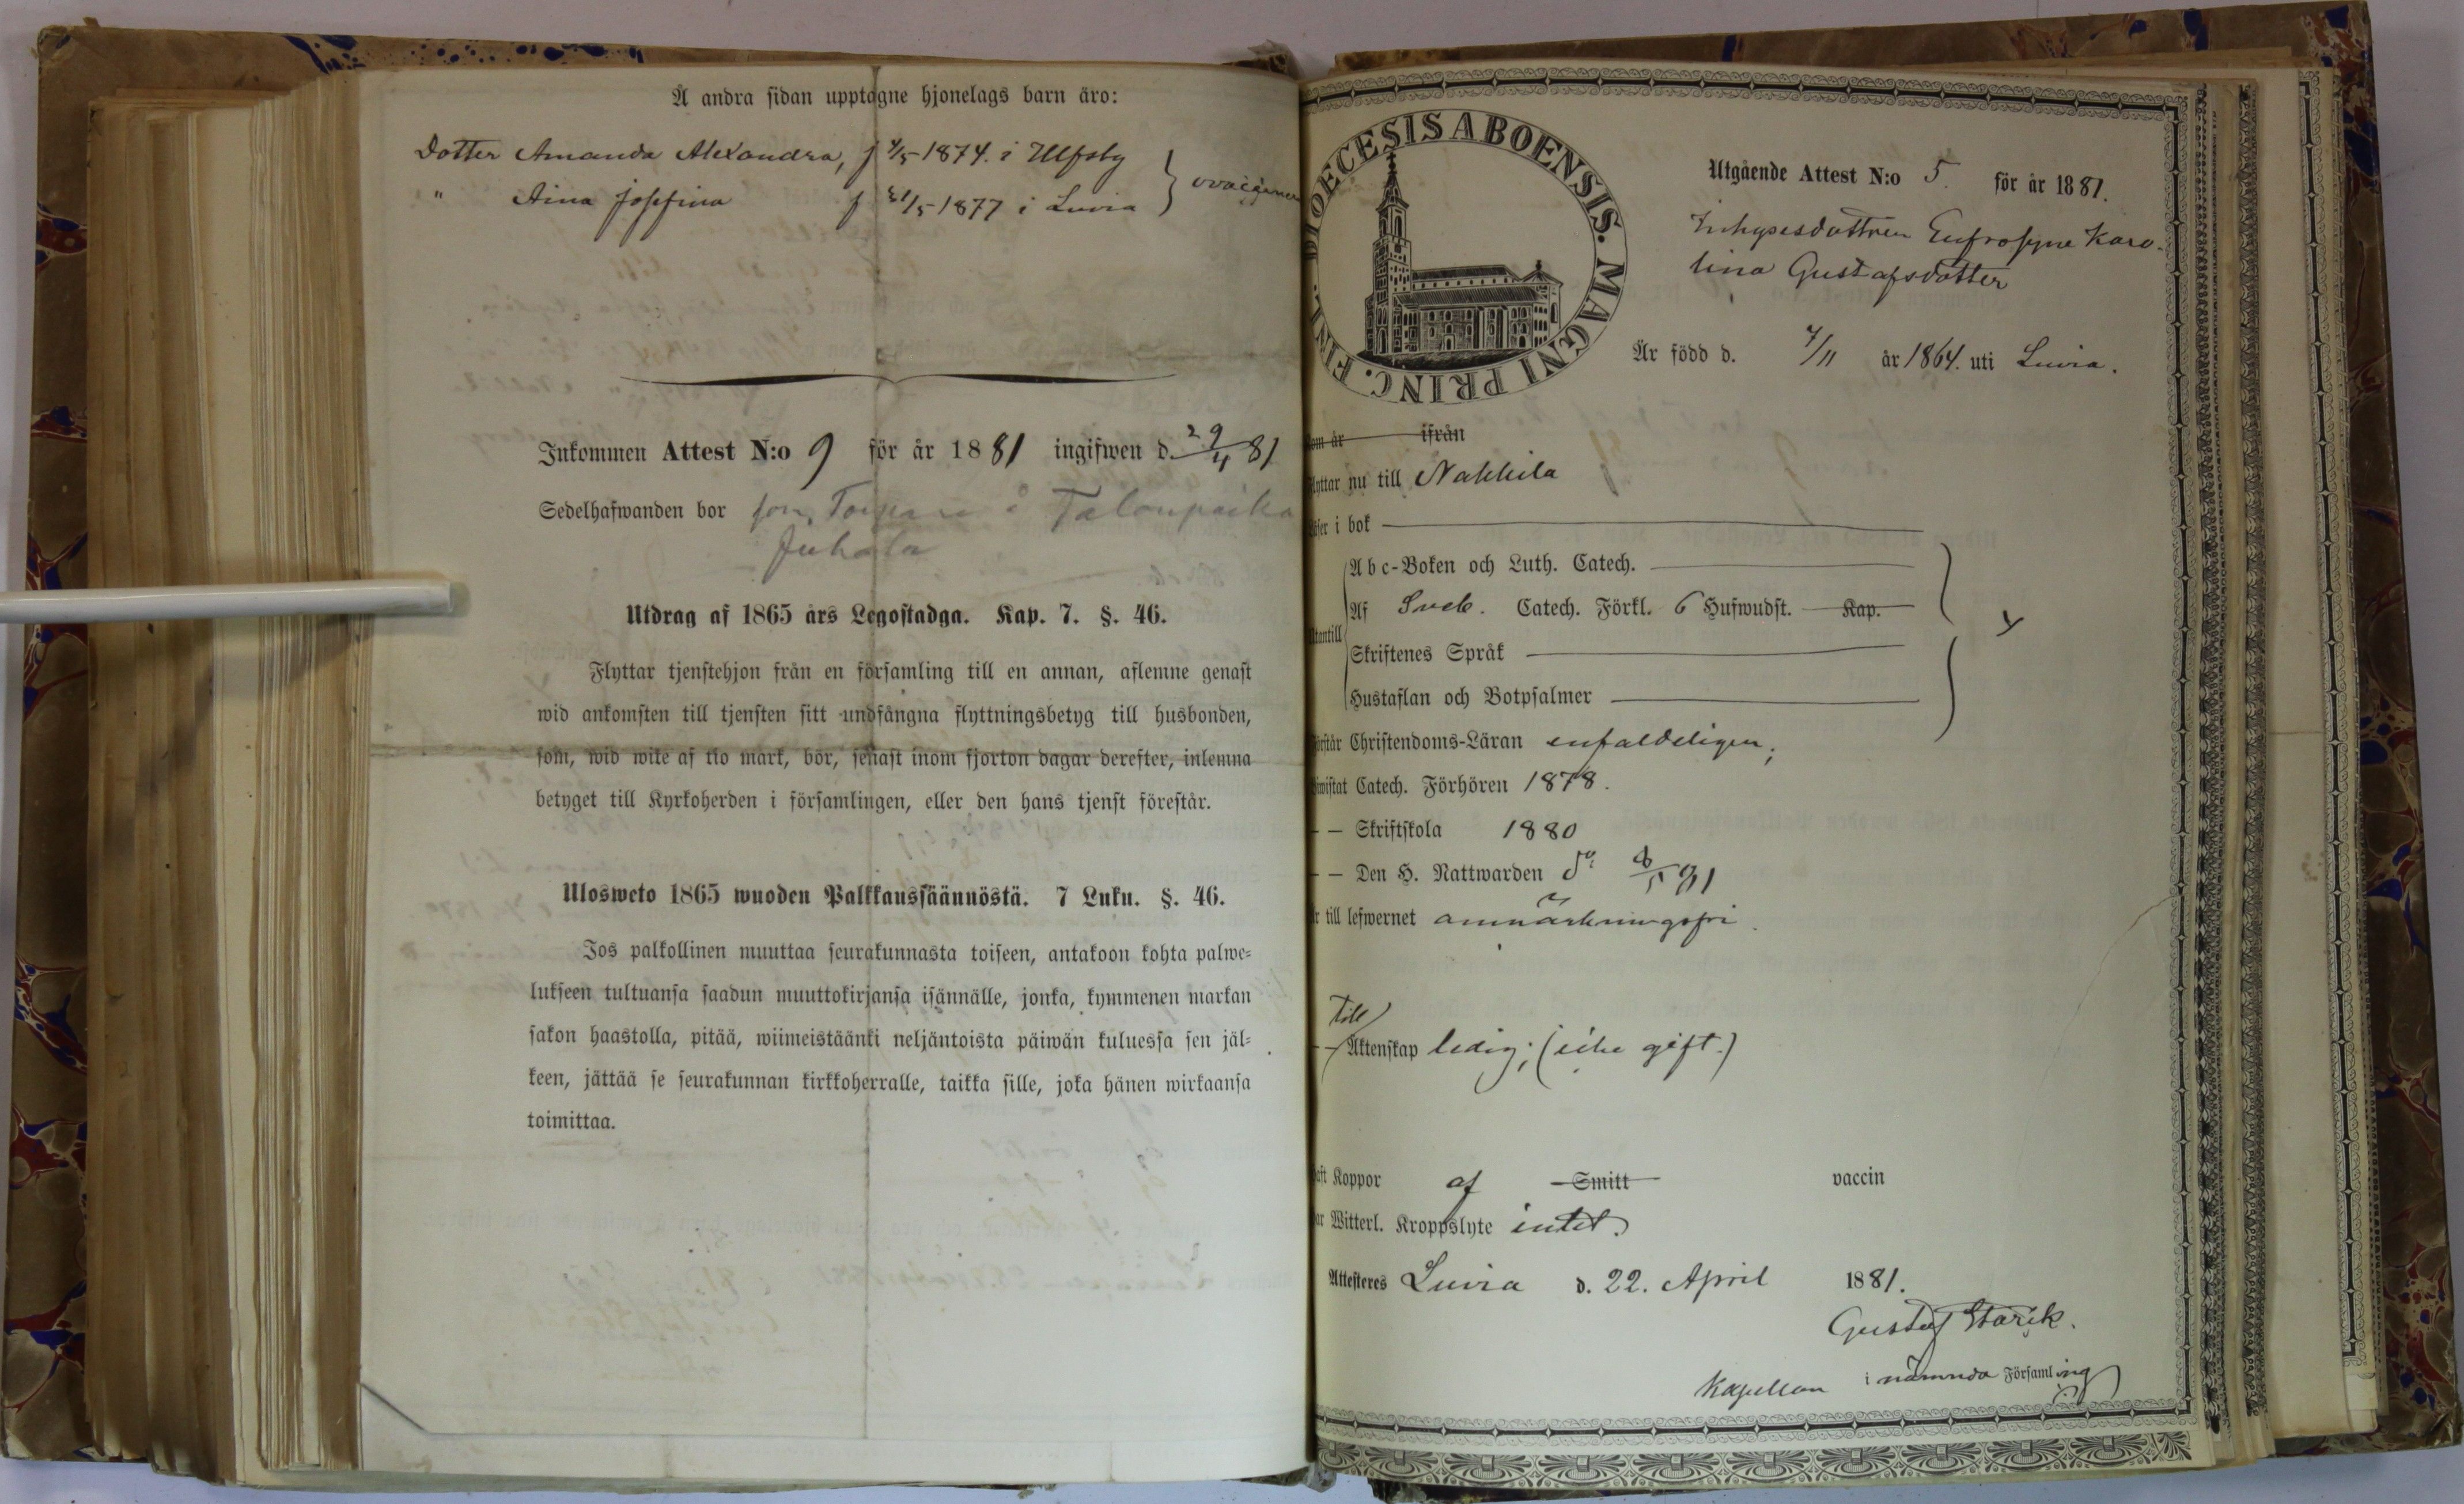 Å andra sidan upptagne hjonelags barn äro:
Dotter Amanda Alexandra, f 4/5 1874. i Ulfsby
" Aina Josefina f 21/5 1877 i Luvia
Inkommen Attest N:o 9 för år 1881 ingifwen d. 29/4 81
Sedelhafwanden bor som Torpare å Talonpoika
Juhala
Utdrag af 1865 års Legostadga. Kap. 7. §. 46.
Flyttar tjenstehjon från en församling till en annan, aflemne genast
wid ankomsten till tjensten sitt undfångna flyttningsbetyg till husbonden,
som, wid wite af tio mark, bör, senast inom fjorton dagar derefter, inlemna
betyget till Kyrkoherden i församlingen, eller den hans tjenst förestår.
Ulosweto 1865 wuoden Palkkaussäännöstä. 7 Luku. §. 46.
Jos palkollinen muuttaa seurakunnasta toiseen, antakoon kohta palwe=
lukseen tultuansa saadun muuttokirjansa isännälle, jonka, kymmenen markan
sakon haastolla, pitää, wiimeistäänki neljäntoista päiwän kuluessa sen jäl=
keen, jättää se seurakunnan kirkkoherralle, taikka sille, joka hänen wirkaansa
toimittaa.
DIOECESIS ABOENSIS. MAGNI PRINC. FINL.
Utgående Attest N:o 5. för år 1881.
Inhysesdottren Eufrosyne Karo-
lina Gustafsdotter
Är född d. 7/11 år 1864. uti Luvia.
som är ifrån
flyttar nu till Nakkila
läser i bok
Abc-Boken och Luth. Catech.
Af Sveb. Catech. Förkl. 6 Hufwudst. Kap.
utantill
Skriftenes Språk
Hustaflan och Botpsalmer
förstår Christendoms-Läran enfaldeligen;
bewistat Catech. Förhören 1878.
— — Skriftskola 1880
— — Den H. Nattwarden do 81
är till lefwernet anmärkningsfri
Till
— — Äktenskap ledig; (icke gift.)
haft Koppor af Smitt vaccin
har Witterl. Kroppslyte intet
Attesteres Luvia d. 22. April 1881.
Gustaf Starck.
Kapellan i nämnda Församling